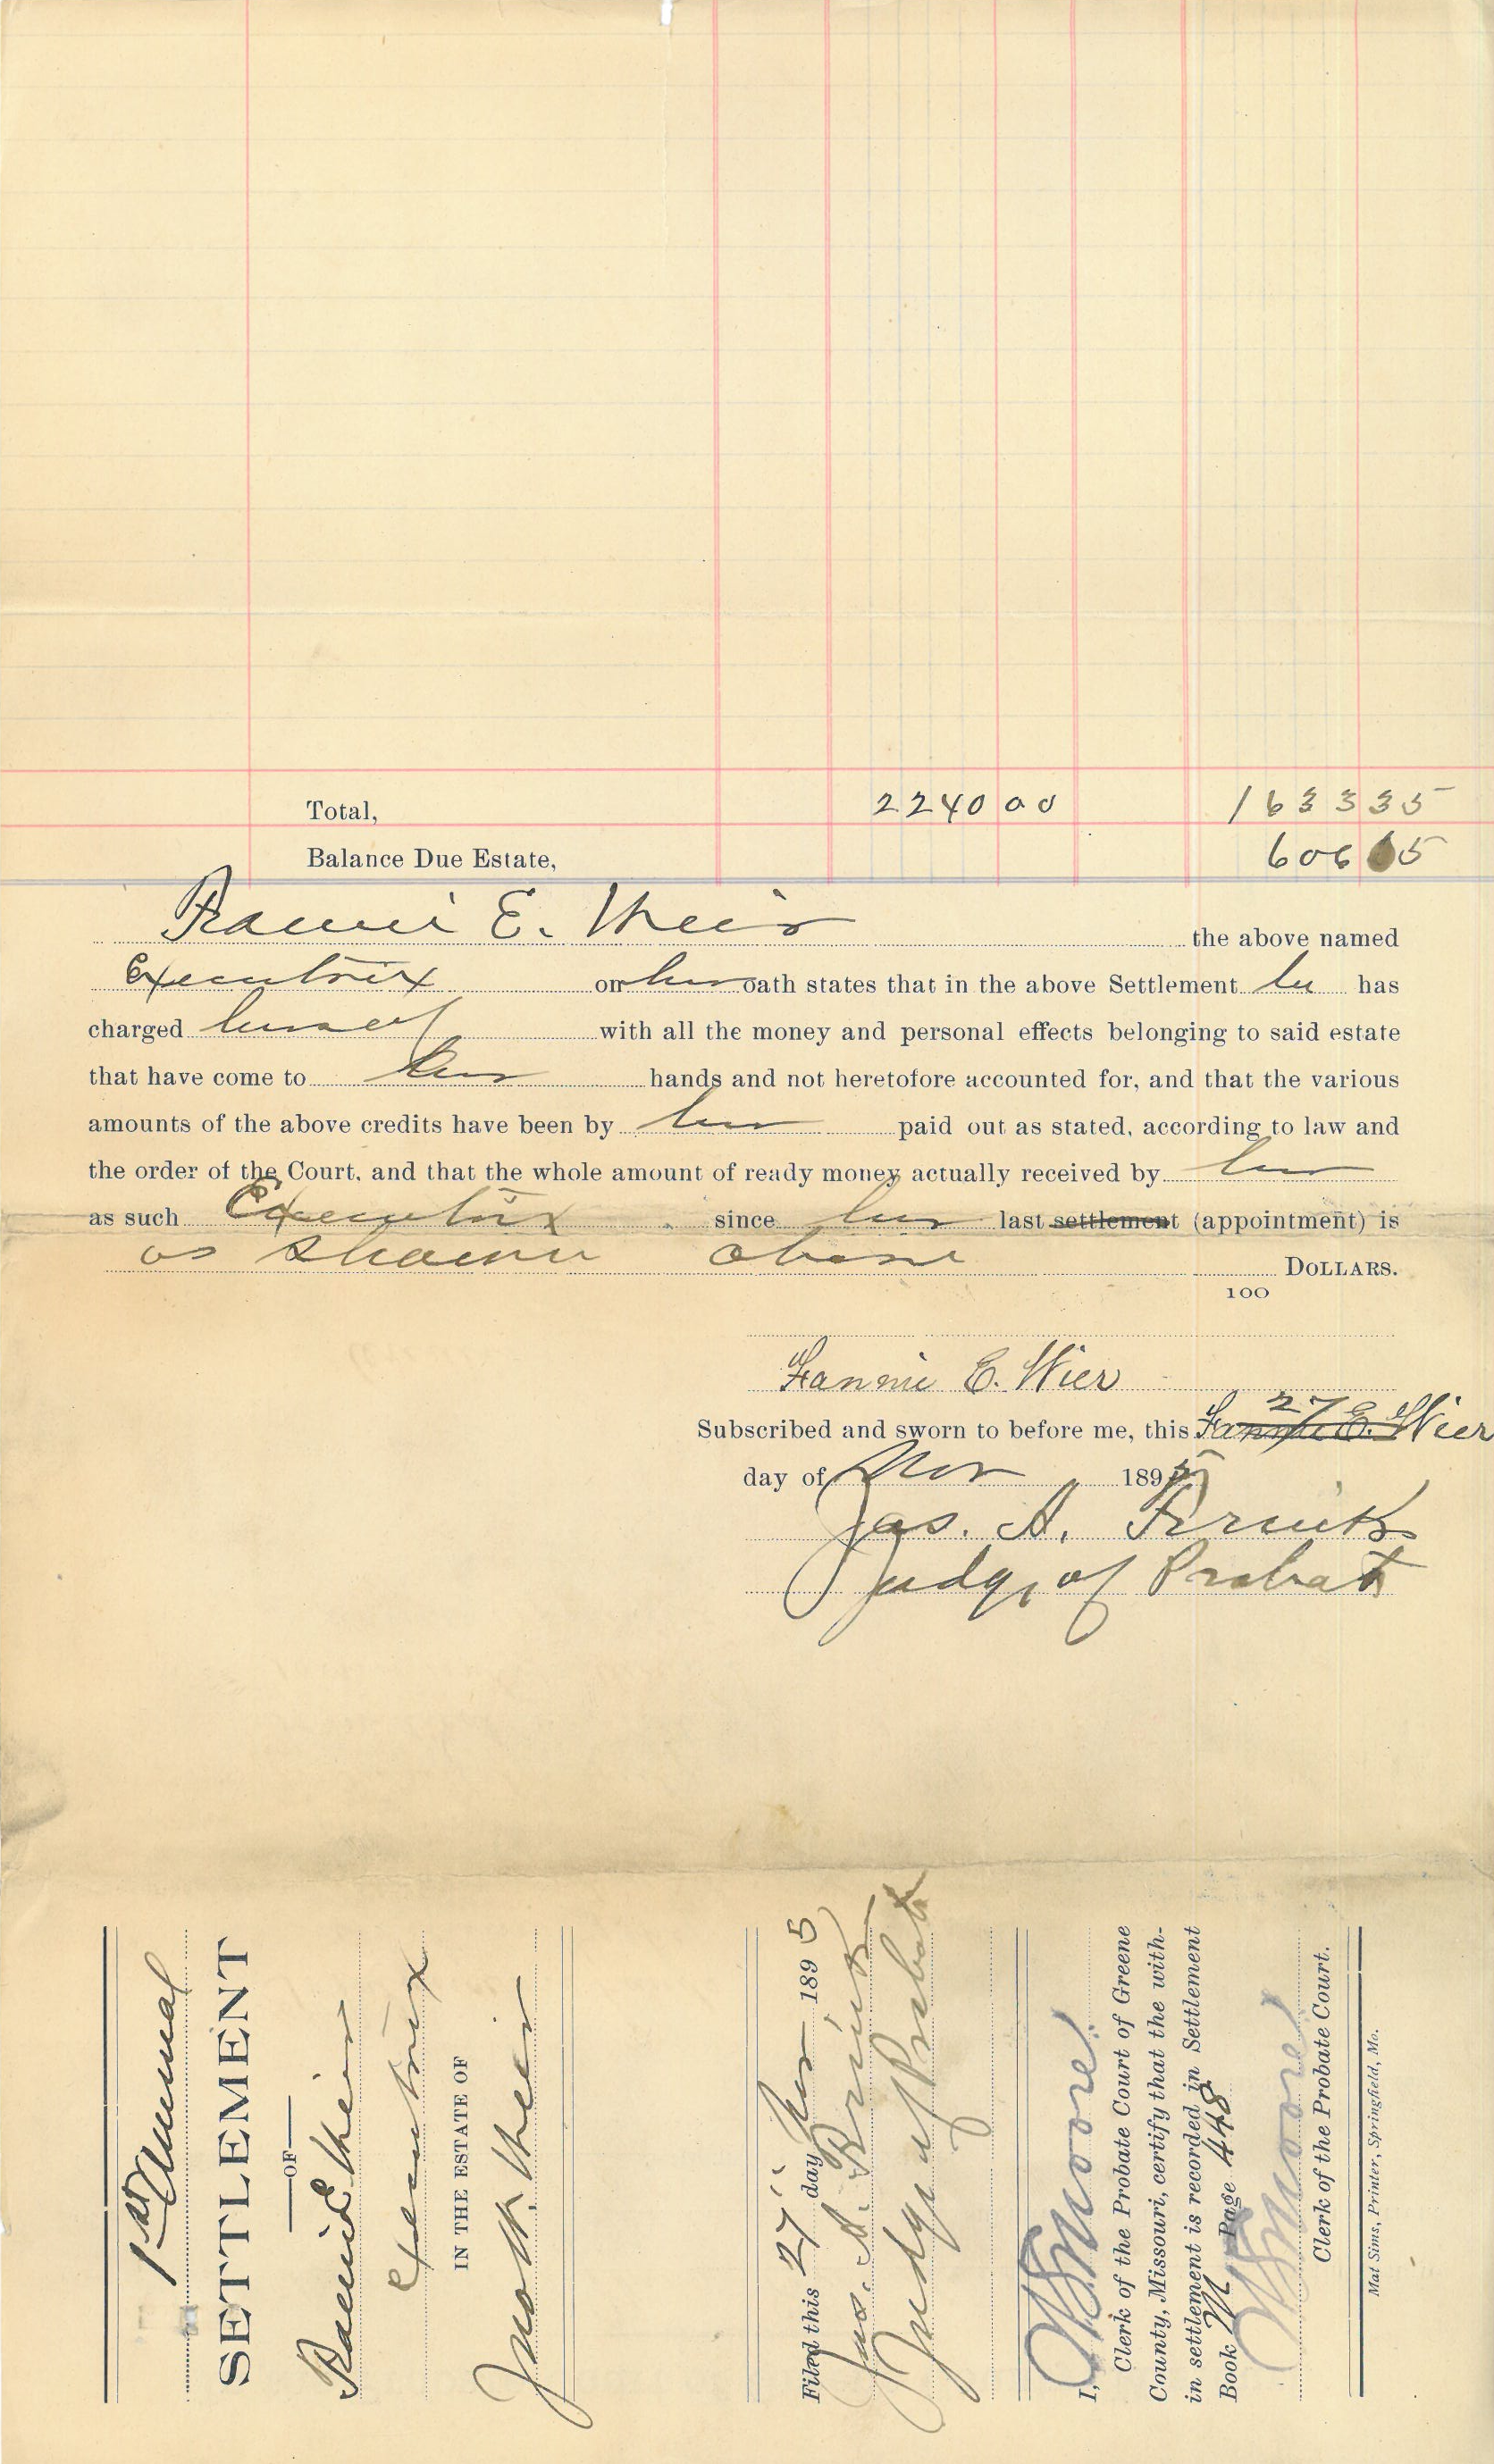 Total, 2240 00 1633 35
Balance Due Estate, 606 65
Fannie E. Weir the above named
Executrix on her oath states that in the above Settlement he has
charged herself with all the money and personal effects belonging to said estate
that have come to her hands and not heretofore accounted for, and that the various
amounts of the above credits have been by her paid out as stated, according to law and
the order of the Court, and that the whole amount of ready money actually received by her
as such Executrix since her last settlement (appointment) is
as shown above DOLLARS.
100
Fannie E. Wier
Subscribed and sworn to before me, this Fannie E. Wier 27
day of Nov 1895
Jas. A.
Judge of Probate
1st Annual
SETTLEMENT
OF
Fannie E. Weir
Executrix
IN THE ESTATE OF
Jno W. Weir
Filed this 27" day Nov 1895
Jas. A.
Judge of Probate
I, Moore
Clerk of the Probate Court of Greene
County, Missouri, certify that the with-
in settlement is recorded in Settlement
Book M Page 448
Moore
Clerk of the Probate Court.
Mat Sims, Printer, Springfield, Mo.